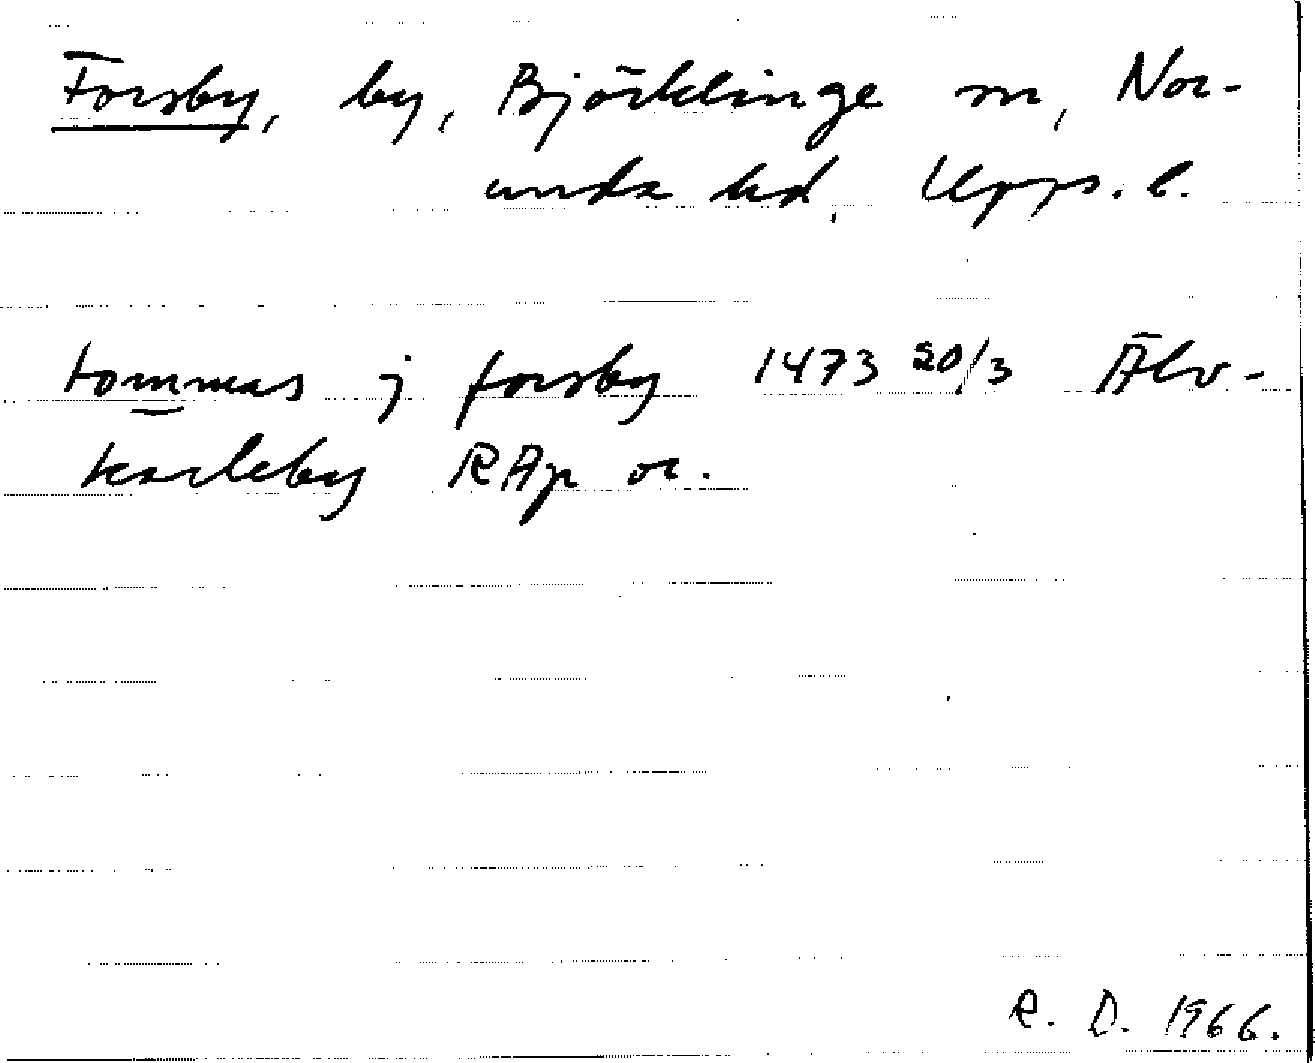 Forsby, by, Björklinge sn, Nor-
unda hd, Upps. l.
tommas j forsby 1473 20/3 Älv-
karleby RAp or.
R. D. 1966.